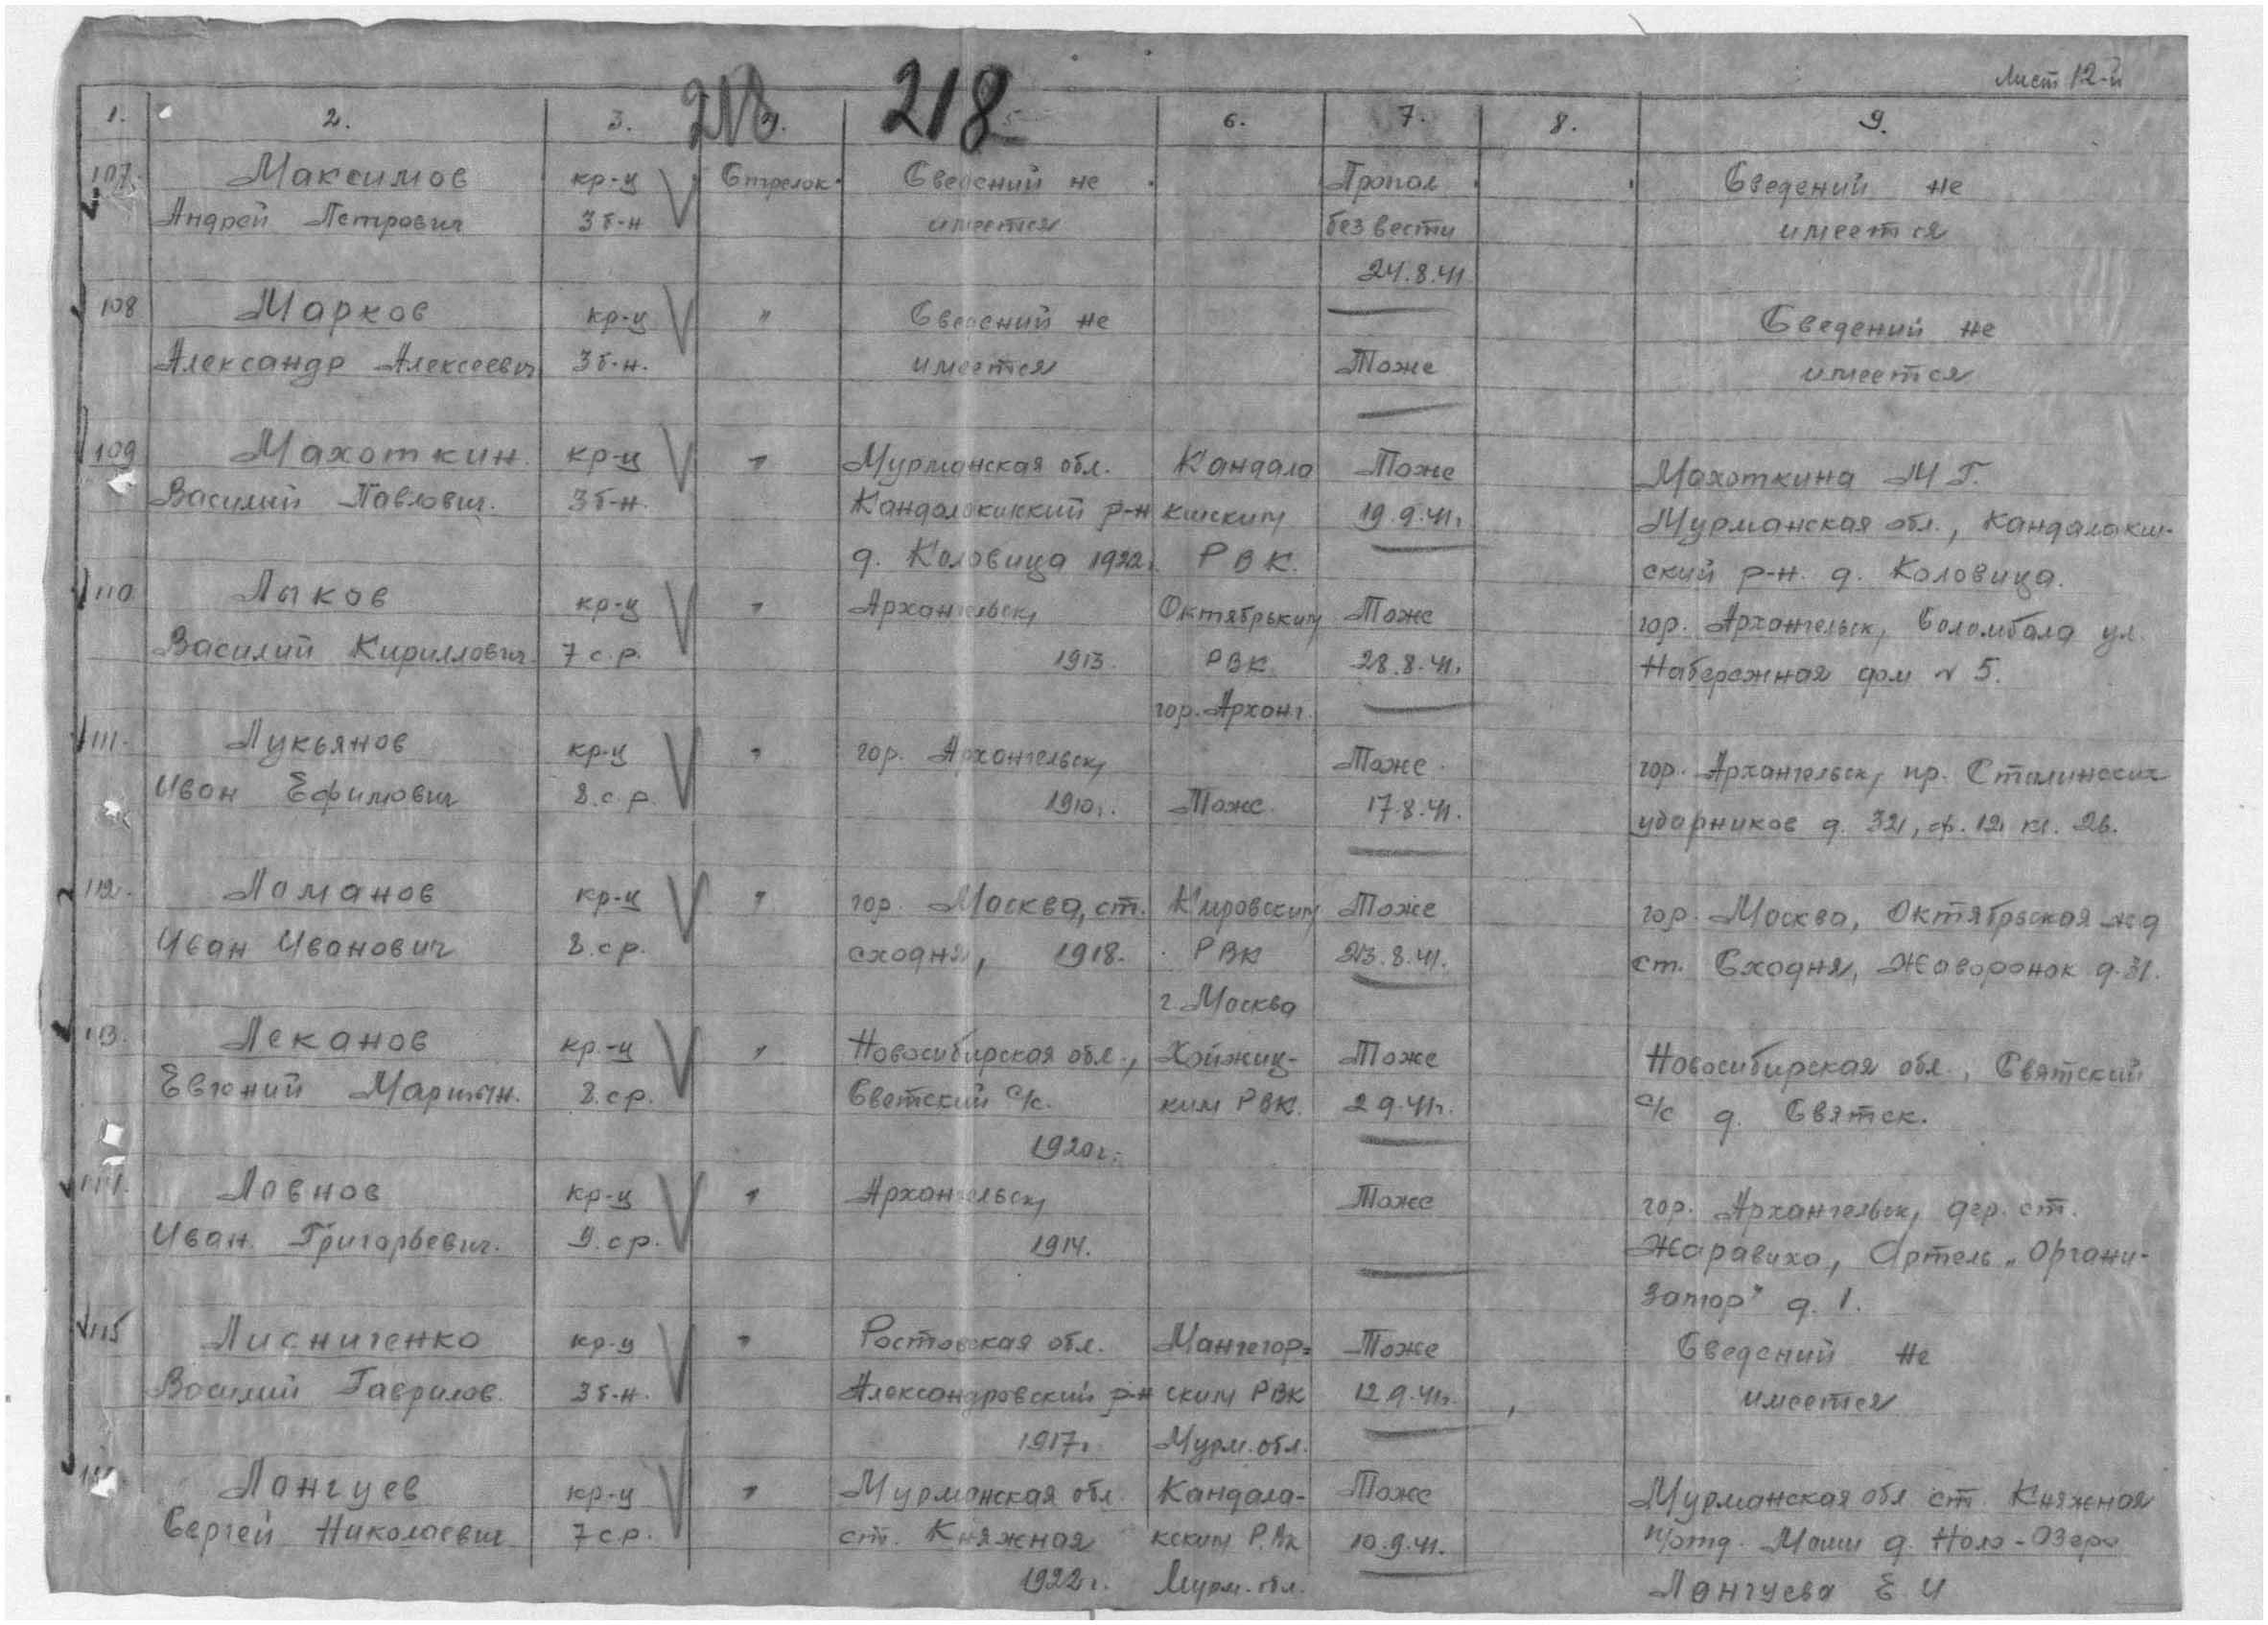 Лист 12-й
218 218
1. 2. 3. 4. 5 6. 7. 8. 9.
107. Максимов кр-ц Стрелок Сведений не Пропал Сведений не
Андрей Петрович 3 б-н имеется без вести имеется
24.8.41
108 Марков кр-ц " Сведений не Сведений не
Александр Алексеевич 3 б-н. имеется Тоже имеется
109 Махоткин кр-ц " Мурманская обл. Кандала Тоже Махоткина М Г.
Василий Павлович. 3 б-н. Кандалакшский р-н кшским 19.9.41г. Мурманская обл., Кандалакш-
д. Коловица 1922г. РВК. ский р-н. д. Коловица.
110 Лыков кр-ц " Архангельск, Октябрьким Тоже гор. Архангельск, Соломбала ул.
Василий Кириллович. 7 с.р. 1913. РВК 28.8.41г. Набережная дом № 5.
гор. Арханг.
111. Лукьянов кр-ц " гор. Архангельск, Тоже. гор. Архангельск, пр. Сталинских
Иван Ефимович 8.с.р. 1910г. Тоже. 17.8.41. ударников д. 32, ф. 12 кв. 26.
112. Ломанов кр-ц " гор. Москва, ст. Кировским Тоже гор. Москва, Октябрьская ж д
Иван Иванович 8.ср. сходня, 1918. РВК 23.8.41. ст. Сходня, Жаворонок д.31.
г. Москва
113. Леканов кр.-ц " Новосибирская обл., Хойниц- Тоже Новосибирская обл., Святский
Евгений Мартын. 8.ср. Светский с/с. ким РВК. 2 9.41г. с/с д. Святск.
1920г.
114. Лавнов кр-ц " Архангельск, Тоже гор. Архангельск, дер. ст.
Иван Григорьевич. 9.ср. 1914. Жаравиха, Артель „Органи-
затор" д. 1.
115 Лисниченко кр-ц " Ростовская обл. Мончегор= Тоже Сведений не
Василий Гаврилов. 3 б-н. Александровский р-н ским РВК 12.9.41г. имеется
1917г. Мурм. обл.
116. Лангуев кр-ц " Мурманская обл. Кандала- Тоже Мурманская обл ст. Княжная
Сергей Николаевич 7 с.р. ст. Княжная кским 10.9.41. д. Ноло-Озеро
1922г. Мурм. обл. Лангуева Е И